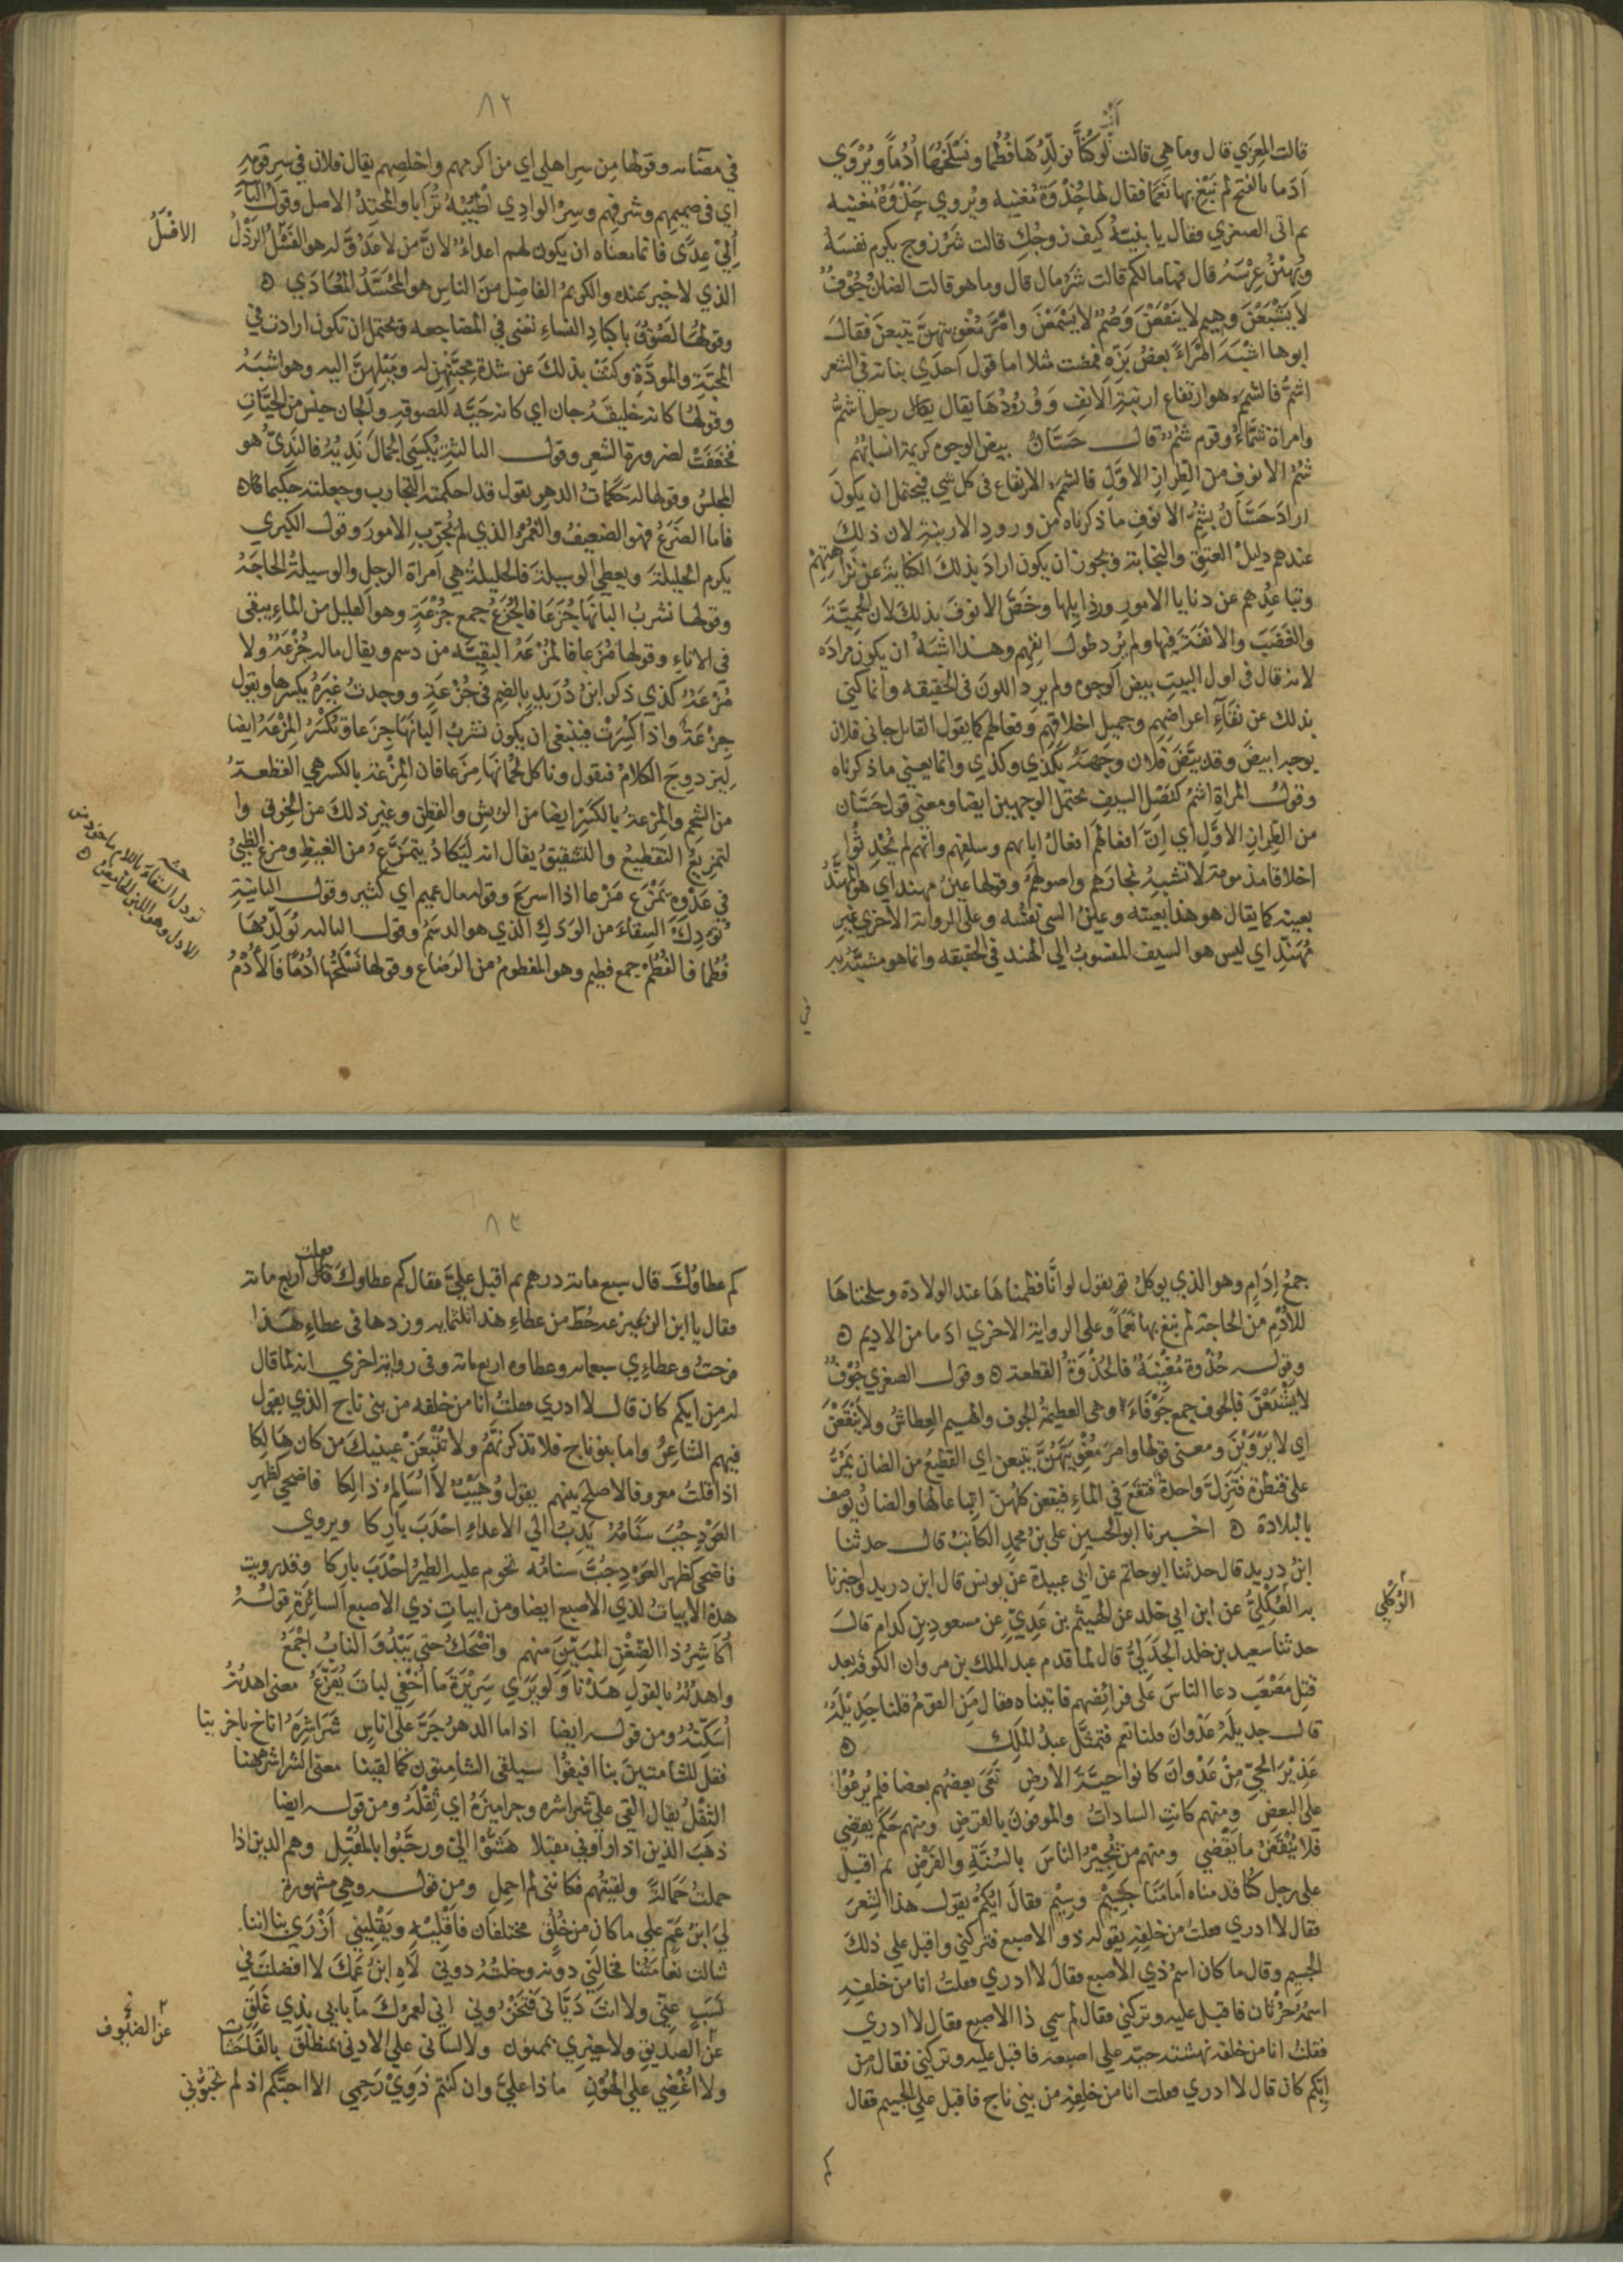 قالت المعزي قال وما هي قالت لو كنا نولدها فطما ونسلخها أدما ويروي
أدما بالفتح لم نبغ بها نعما فقال لها جذوة مغنيه ويروي جذوة مغنيه
ثم اتى الصغري فقال يا بنية كيف زوجك قالت شر زوج يكرم نفسه
ويهين عرسه قال فما مالكم قالت شر مال قال وما هو قالت الضان جوف
لا يشبعن وهيم لا ينقعن وصم لا يسمعن وامر مغويتهن يتبعن فقال
ابوها اشبه امراء بعض بزه فمضت مثلا اما قول احدي بناته في الشعر
اشم فالشمم هو ارتفاع ارنبة الانف وورودها يقال رجل اشم
وامراة شماء وقوم شم قال حسان بيض الوجوه كريمة انسابهم
شم الانوف من الطراز الاول فالشمم الارتفاع في كل شي فيحتمل ان يكون
اراد حسان بشم الانوف ما ذكرناه من ورود الارنبة لان ذلك
عندهم دليل العتق والنجابة ويجوز ان يكون اراد بذلك الكناية عن نزاهتهم
وتباعدهم عن دنايا الامور ورذايلها وخص الانوف بذلك لان الحمية
والغضب والانفة فيها ولم يرد طول انفهم وهذا اشبه ان يكون مراده
لانه قال في اول البيت بيض الوجوه ولم يرد اللون في الحقيقه وانما كني
بذلك عن نقاء اعراضهم وجميل اخلاقهم وفعالهم كما يقول القائل جاني فلان
بوجه ابيض وقد بيض فلان وجهه بكذي وكذي وانما يعني ما ذكرناه
وقول المراة اشم كنصل السيف يحتمل الوجهين ايضا ومعني قول حسان
من الطراز الاول اي ان افعالهم افعال ابايهم وسلفهم وانهم لم يحدثوا
اخلاقا مذمومة لا تشبه نجارهم واصولهم وقولها عين مهند اي هو المهند
بعينه كما يقال هو هذا بعينه وعين الشي نفسه وعلى الرواية الاخري غير
مهند اي ليس هو السيف المنسوب الي الهند في الحقيقه وانما هو مشبه به
في
٨٢
في مضائه وقولها من سر اهلي اي من اكرمهم واخلصهم يقال فلان في سر قومه
اي في صميمهم وشرفهم وسر الوادي اطيبه ترابا والمحتد الاصل وقول الثانية
اولي عدي فانما معناه ان يكون لهم اعداء لان من لا عدو له هو الفسل الرذل
الذي لا خير عنده والكريم الفاضل من الناس هو المحسد المعادي
وقولها لصوق باكباد النساء تعني في المضاجعه ويحتمل ان تكون ارادت في
المحبة والمودة وكنت بذلك عن شدة محبتهن له وميلهن اليه وهو اشبه
وقولها كانه خليفة جان اي كانه حية للصوقه والجان جنس من الحيات
فخففت لضرورة الشعر وقول الثالثة يكسى الجمال نديه فالندي هو
المجلس وقولها له حكمات الدهر يقول قد احكمته التجارب وجعلته حكيما
فاما الضرع فهو الضعيف والغمر الذي لم يجرب الامور وقول الكبري
يكرم الحليلة ويعطي الوسيلة فالحليلة هي امراة الرجل والوسيلة الحاجة
وقولها نشرب البانها جزعا فالجزع جمع جزعة وهو القليل من الماء يبقى
في الاناء وقولها مزعا فالمزعة البقية من دسم ويقال ماله جزعة ولا
مزعة كذي ذكر ابن دريد بالضم في جزعة ووجدت غيره يكسرها ويقول
جزعة واذا كسرت فينبغي ان يكون نشرب البانها جزعا وتكسر المزعة ايضا
ليزدوج الكلام فنقول وناكل لحمانها مزعا فان المزعة بالكسر هي القطعة
من الشحم والمزعة بالكسر ايضا من الريش والقطن وغير ذلك من الخرق وا
لتمزيع التقطيع والتشقيق يقال انه ليكاد يتمزع من الغيظ ومزع الظبي
في عدوه يمزع مزعا اذا اسرع وقوله مال عميم اي كثير وقول الثانية
تودك السقاء من الودك الذي هو الدسم وقول الثالثه نولدها
فطما فالفطم جمع فطيم وهو المفطوم من الرضاع وقولها نسلخها ادما فالأدم
جمع ادام وهو الذي يوكل تم يقول لو انا فطمناها عند الولادة وسلخناها
للادم من الحاجة لم نبغ بها نعما وعلى الرواية الاخري ادما من الاديم
وقوله جذوة مغنية فالجذوة القطعة وقول الصغري جوف
لا يشبعن فالجوف جمع جوفاء وهي العظيمة الجوف والهيم العطاش ولا ينقعن
اي لا يروين ومعنى قولها وامر مغويتهن يتبعن اي القطيع من الضان يمر
على قنطرة فتزل واحدة فتقع في الماء فيقعن كلهن اتباعا لها والضان يوصف
بالبلادة اخبرنا ابو الحسين علي بن محمد الكاتب قال حدثنا
ابن دريد قال حدثنا ابو حاتم عن ابي عبيدة عن يونس قال ابن دريد واخبرنا
به العكلي عن ابن ابي خلد عن الهيثم بن عدي عن مسعود بن كدام قال
حدثنا سعيد بن خلد الجدلي قال لما قدم عبد الملك بن مروان الكوفه بعد
قتل مصعب دعا الناس على فرائضهم فاتيناه فقال من القوم قلنا جديلة
قال جديلة عدوان قلنا نعم فتمثل عبد الملك
عذير الحي من عدوان كانوا حية الارض بغى بعضهم بعضا فلم يرعوا
على البعض ومنهم كانت السادات والموفون بالقرض ومنهم حكم يقضي
فلا ينقض ما يقضي ومنهم من يجيز الناس بالسنة والفرض ثم اقبل
على رجل كنا قدمناه امامنا جسيم وسيم فقال ايكم يقول هذا الشعر
فقال لا ادري فقلت من خلفه يقوله ذو الاصبع فتركني واقبل على ذلك
الجسيم وقال ما كان اسم ذي الاصبع فقال لا ادري فقلت انا من خلفه
اسمه حرثان فاقبل عليه وتركني فقال لم سمي ذا الاصبع فقال لا ادري
فقلت انا من خلفه نهشته حية على اصبعه فاقبل عليه وتركني فقال من
ايكم كان قال لا ادري فقلت انا من خلفه من بني ناج فاقبل على الجسيم فقال
٨٣
كم عطاوك قال سبع مائة درهم ثم اقبل علي فقال كم عطاوك فقلت اربع مائة
فقال يا ابن الزعيزعه حط من عطاء هذا ثلثمايه وزدها في عطاء هذا
فرحت وعطاءي سبعمايه وعطاوه اربع مائة وفي رواية اخري انه لما قال
له من ايكم كان قال لا ادري فقلت انا من خلفه من بني ناج الذي يقول
فيهم الشاعر واما بنو ناج فلا تذكرنهم ولا تتبعن عينيك من كان هالكا
اذا قلت معروفا لاصلح بينهم يقول وهيب لا اسالم ذالكا فاضحي كظهر
العود جب سنامه يدب الي الاعداء احدب باركا ويروي
فاضحى كظهر العود جب سنامه تحوم عليه الطير احدب باركا وقد رويت
هذه الابيات لذي الاصبع ايضا ومن ابيات ذي الاصبع السائرة قوله
اكاشر ذا الضغن المبين منهم واضحك حتي يبدو الناب اجمع
واهدنه بالقول هدنا ولو يري سريرة ما اخفي لبات يفزع معنى اهدنه
اسكنه ومن قوله ايضا اذا ما الدهر جر على اناس شراشره اناخ باخرينا
فقل للشامتين بنا افيقوا سيلقى الشامتون كما لقينا معنى الشراشر ههنا
الثقل يقال القي علي شراشره وجراميزه اي ثقله ومن قوله ايضا
ذهب الذين اذا راوني مقبلا هشوا الي ورحبوا بالمقبل وهم الذين اذا
حملت حمالة ولقيتهم فكانني لم احمل ومن قوله وهي مشهورة
لي ابن عم على ما كان من خلق مختلفان فاقليه ويقليني ازري بنا اننا
شالت نعامتنا فخالني دونه وخلته دوني لاه ابن عمك لا افضلت في
حسب عني ولا انت دياني فتخزوني اني لعمرك ما بابي بذي غلق
عن الصديق ولا خيري بممنون ولا لساني على الادنى بمنطلق بالفاحشات
ولا اغضي على الهون ماذا علي وان كنتم ذوي رحمي الا احبكم اذ لم تحبوني